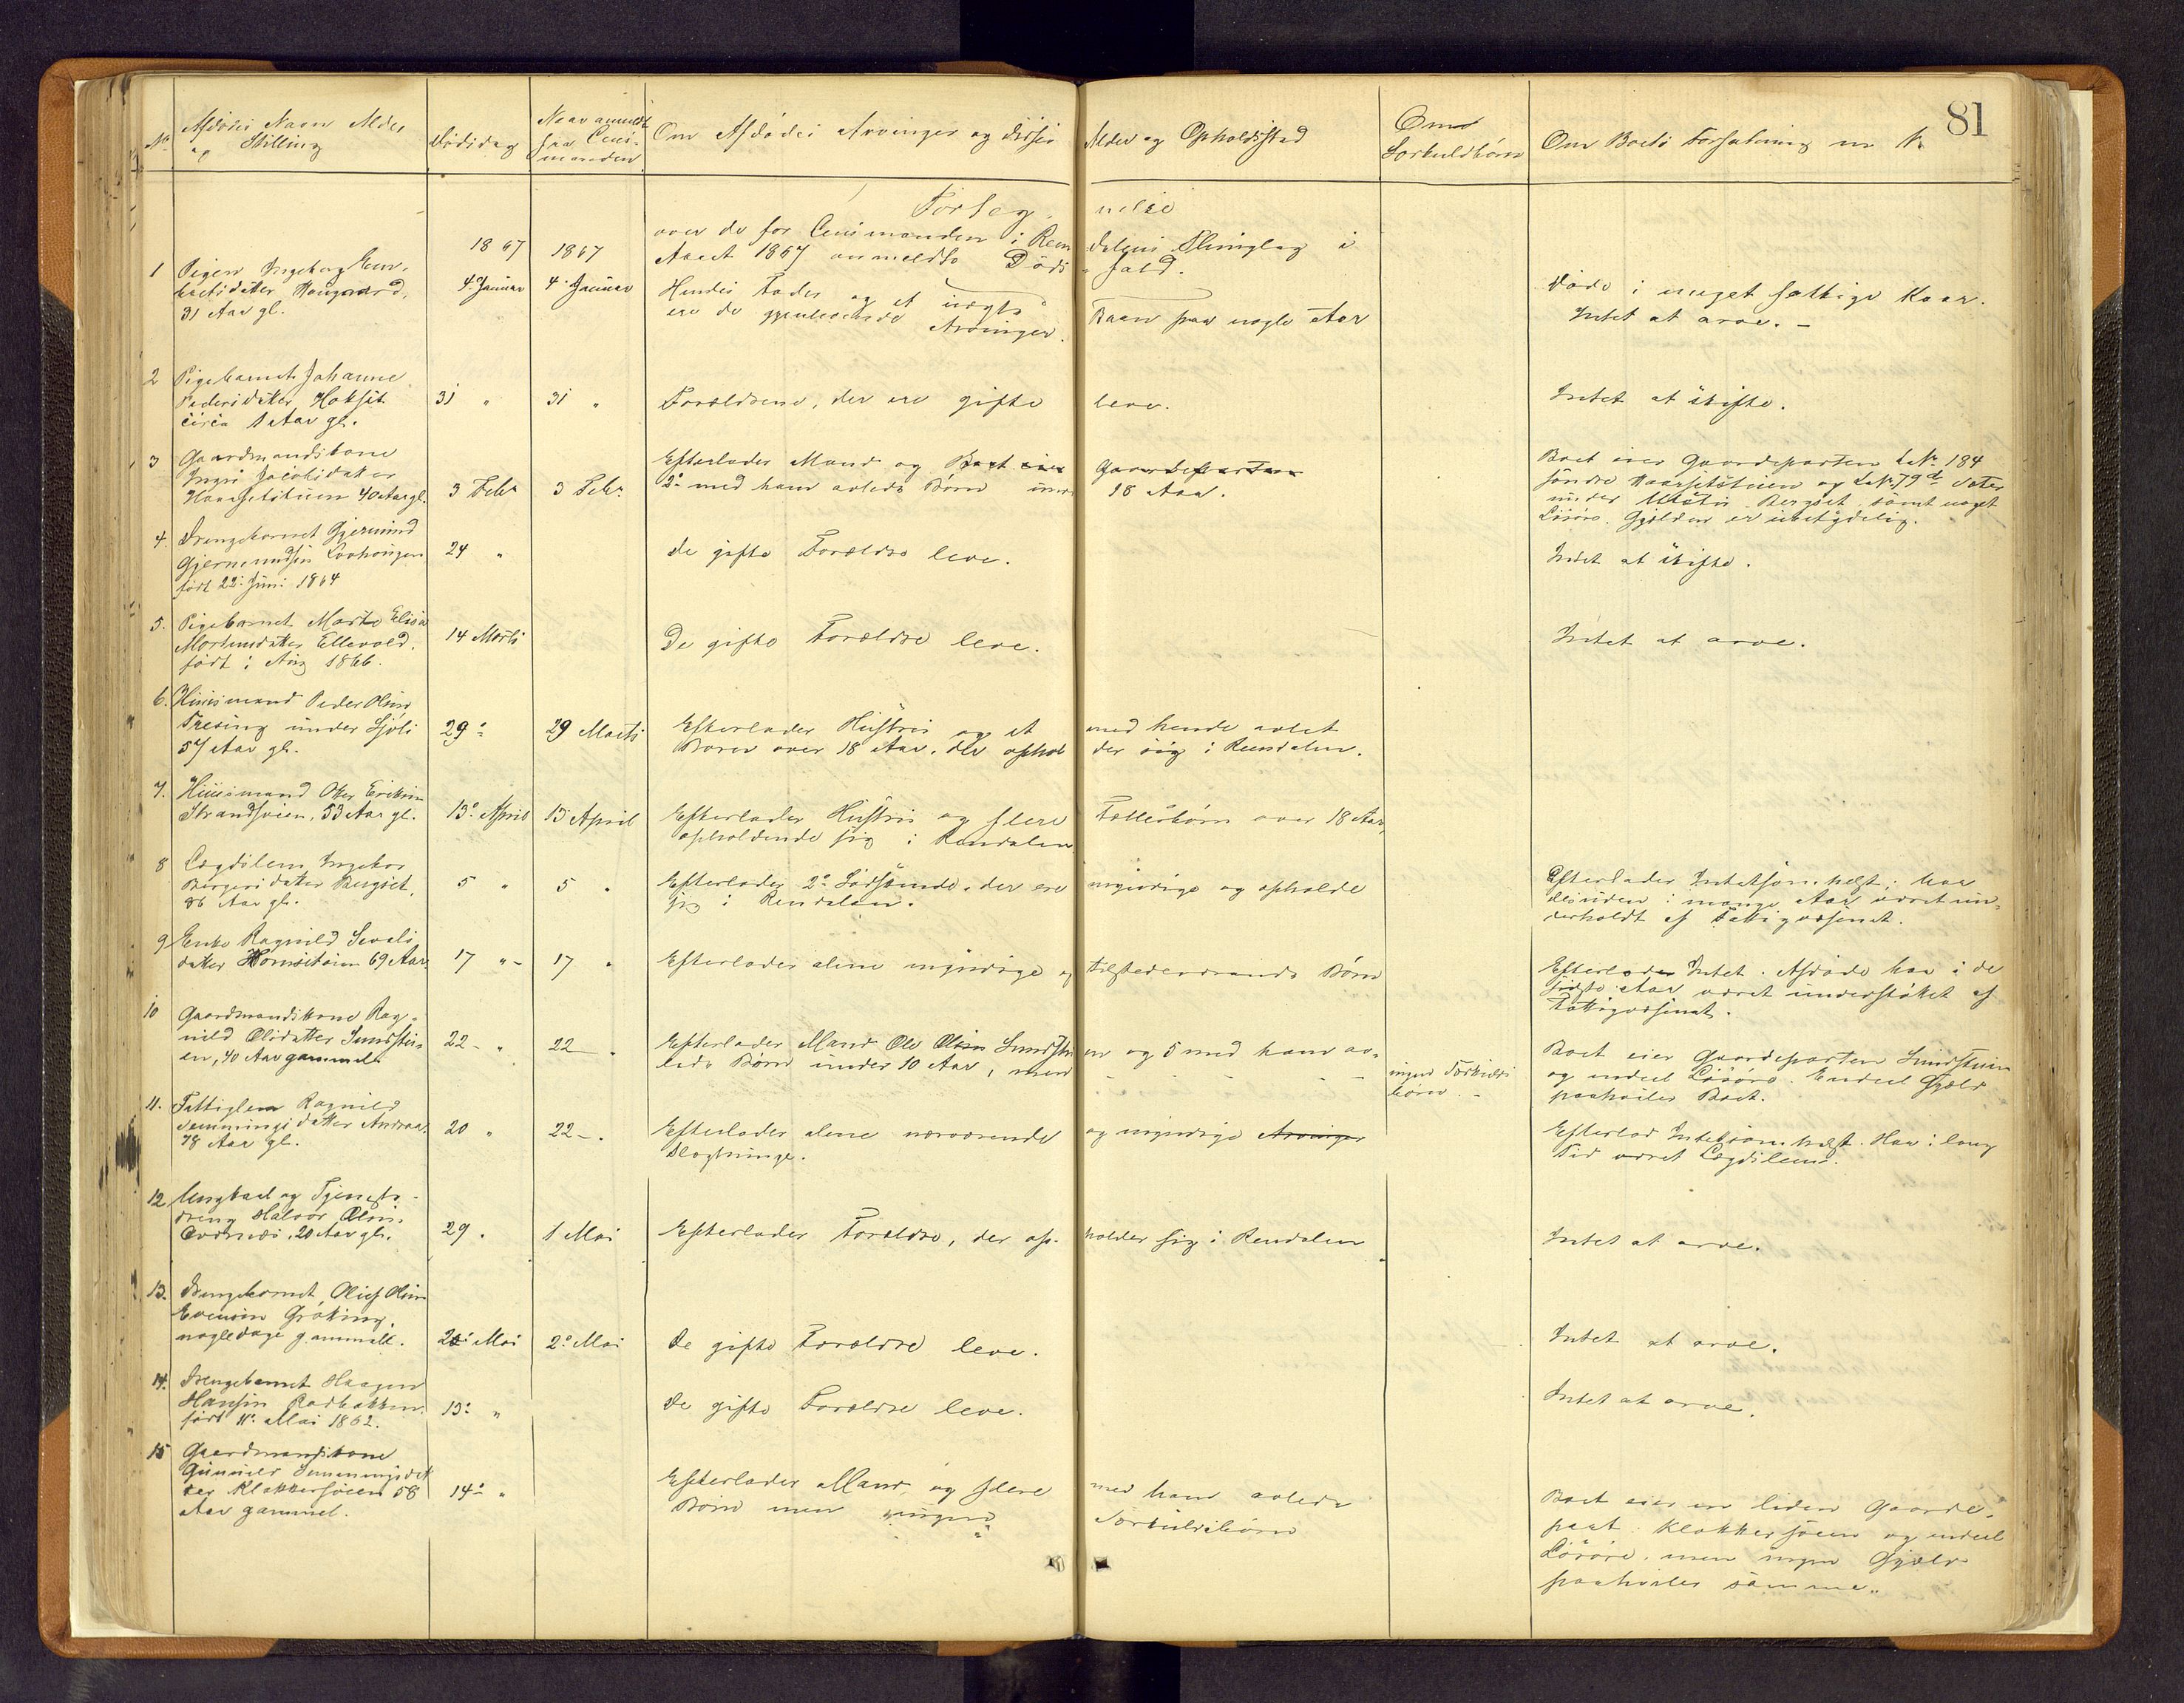 81
No Afdødes Navn Alder og Stilling
Dødsdag
Naar anmeldt fra Lens-manden
Om Afdødes Arvinger og disses Alder og Opholdssted
Om Særkuldbørn
Om Boets Forfatning m. v.
Forteg nelse
over de for Lensmanden i Ren dalens Thinglag i
Aaret 1867 anmeldte Døds-fald.
1867 1867
1 Pigen Ingeborg
datter
31 Aar gl.
4. Januar 4. Januar
Hendes Fader og et uægte Barn paa nogle Aar
ere de gjenlevende Arvinger.
Døde i meget fattige Kaar.
Intet at arve. -
2 Pigebarnet Johanne
Pedersdatter Hoksæt
circa 1 Aar gl.
31 " 31 "
Forældrene, der ere gifte leve.
Intet at skifte.
3 Gaardmandskone
Jacobsdatter
40 Aar gl.
3 Febr 3 Febr.
Efterlader Mand og
2de med ham avlede Børn under 18 Aar.
Boet eier Gaardeparten L.Nr. 184
søndre og L.Nr. 79
under Bergset samt noget
Løsøre. Gjælden er ubetydelig.
4. Drengebarnet Gjermund
Gjermundsen
født 22. Juni 1864
24 "
De gifte Forældre leve.
Intet at skifte.
5. Pigebarnet Marte Elisa
Mortensdatter Ellevold.
født i Aug 1866.
14 Marts
De gifte Forældre leve.
Intet at arve.
6. Huusmand Peder Olsen
Tresing under Sjøli
57 Aar gl.
29. 29 Marts
Efterlader Hustru og et med hende avlet
Barn over 18 Aar, der ophol der sig i Rendalen.
7. Huusmand Ole Eriksen
Strandsveen, 53 Aar gl.
13. April 13 April
Efterlader Hustru og flere Fællesbørn over 18 Aar,
opholdende sig i Rendalen
8 Lægdslem Ingebor
Bergersdatter Bergset,
86 Aar gl.
5 " 5 "
Efterlader 2de Sødskende, der ere myndige og opholde
sig i Rendalen.
Efterlader Intetsomhelst; har
desuden i mange Aar været un-
derholdt af Fattigvæsenet.
9 Enke Ragnild Sevals
datter 69 Aar
17 " - 17 "
Efterlader alene myndige og tilstedeværende Børn
Efterlader Intet. Afdøde har i de
sidste Aar været understøttet af
Fattigvæsenet.
10 Gaardmandskone Rag-
nild Olsdatter Sundstu-
en, 40 Aar gammel
22 - " 22 - "
Efterlader Mand Ole Olsen Sundstu en og 5 med ham av-
lede Børn under 10 Aar, men
ingen Særkulds
børn. -
Boet eier Gaardeparten Sundstuen
og endeel Løsøre. Endeel Gjæld
paahviler Boet.
11. Fattiglem Ragnild
Semmingsdatter Andraa.
78 Aar gl.
20 " 22 - .
Efterlader alene nærværende og myndige Arvinger
Slægtninge.
Efterlod Intetsomhelst. Har i lang
Tid været Lægdslem.
12 Ungkarl og Tjeneste-
dreng Halvor Olsen
20 Aar gl.
29. 1 Mai
Efterlader Forældre, der op- holder sig i Rendalen
Intet at arve.
13. Drengebarnet Oluf Olsen
Evensen Grøtting,
nogle Dage gammelt.
2. Mai 2. Mai
De gifte Forældre leve.
Intet at arve.
14. Drengebarnet Haagen
Hansen
født 11. Mai 1862.
13. "
De gifte Forældre leve.
Intet at arve.
15 Gaardmandskone
Gunnild Semmingsdat
ter Klokkersveen 58
Aar gammel.
14. "
Efterlader Mand og flere med ham avlede
Børn men ingen Særkuldsbørn
Boet eier en liden Gaarde-
part Klokkersveen og endeel
Løsøre, men ingen Gjæld
paahviler samme.